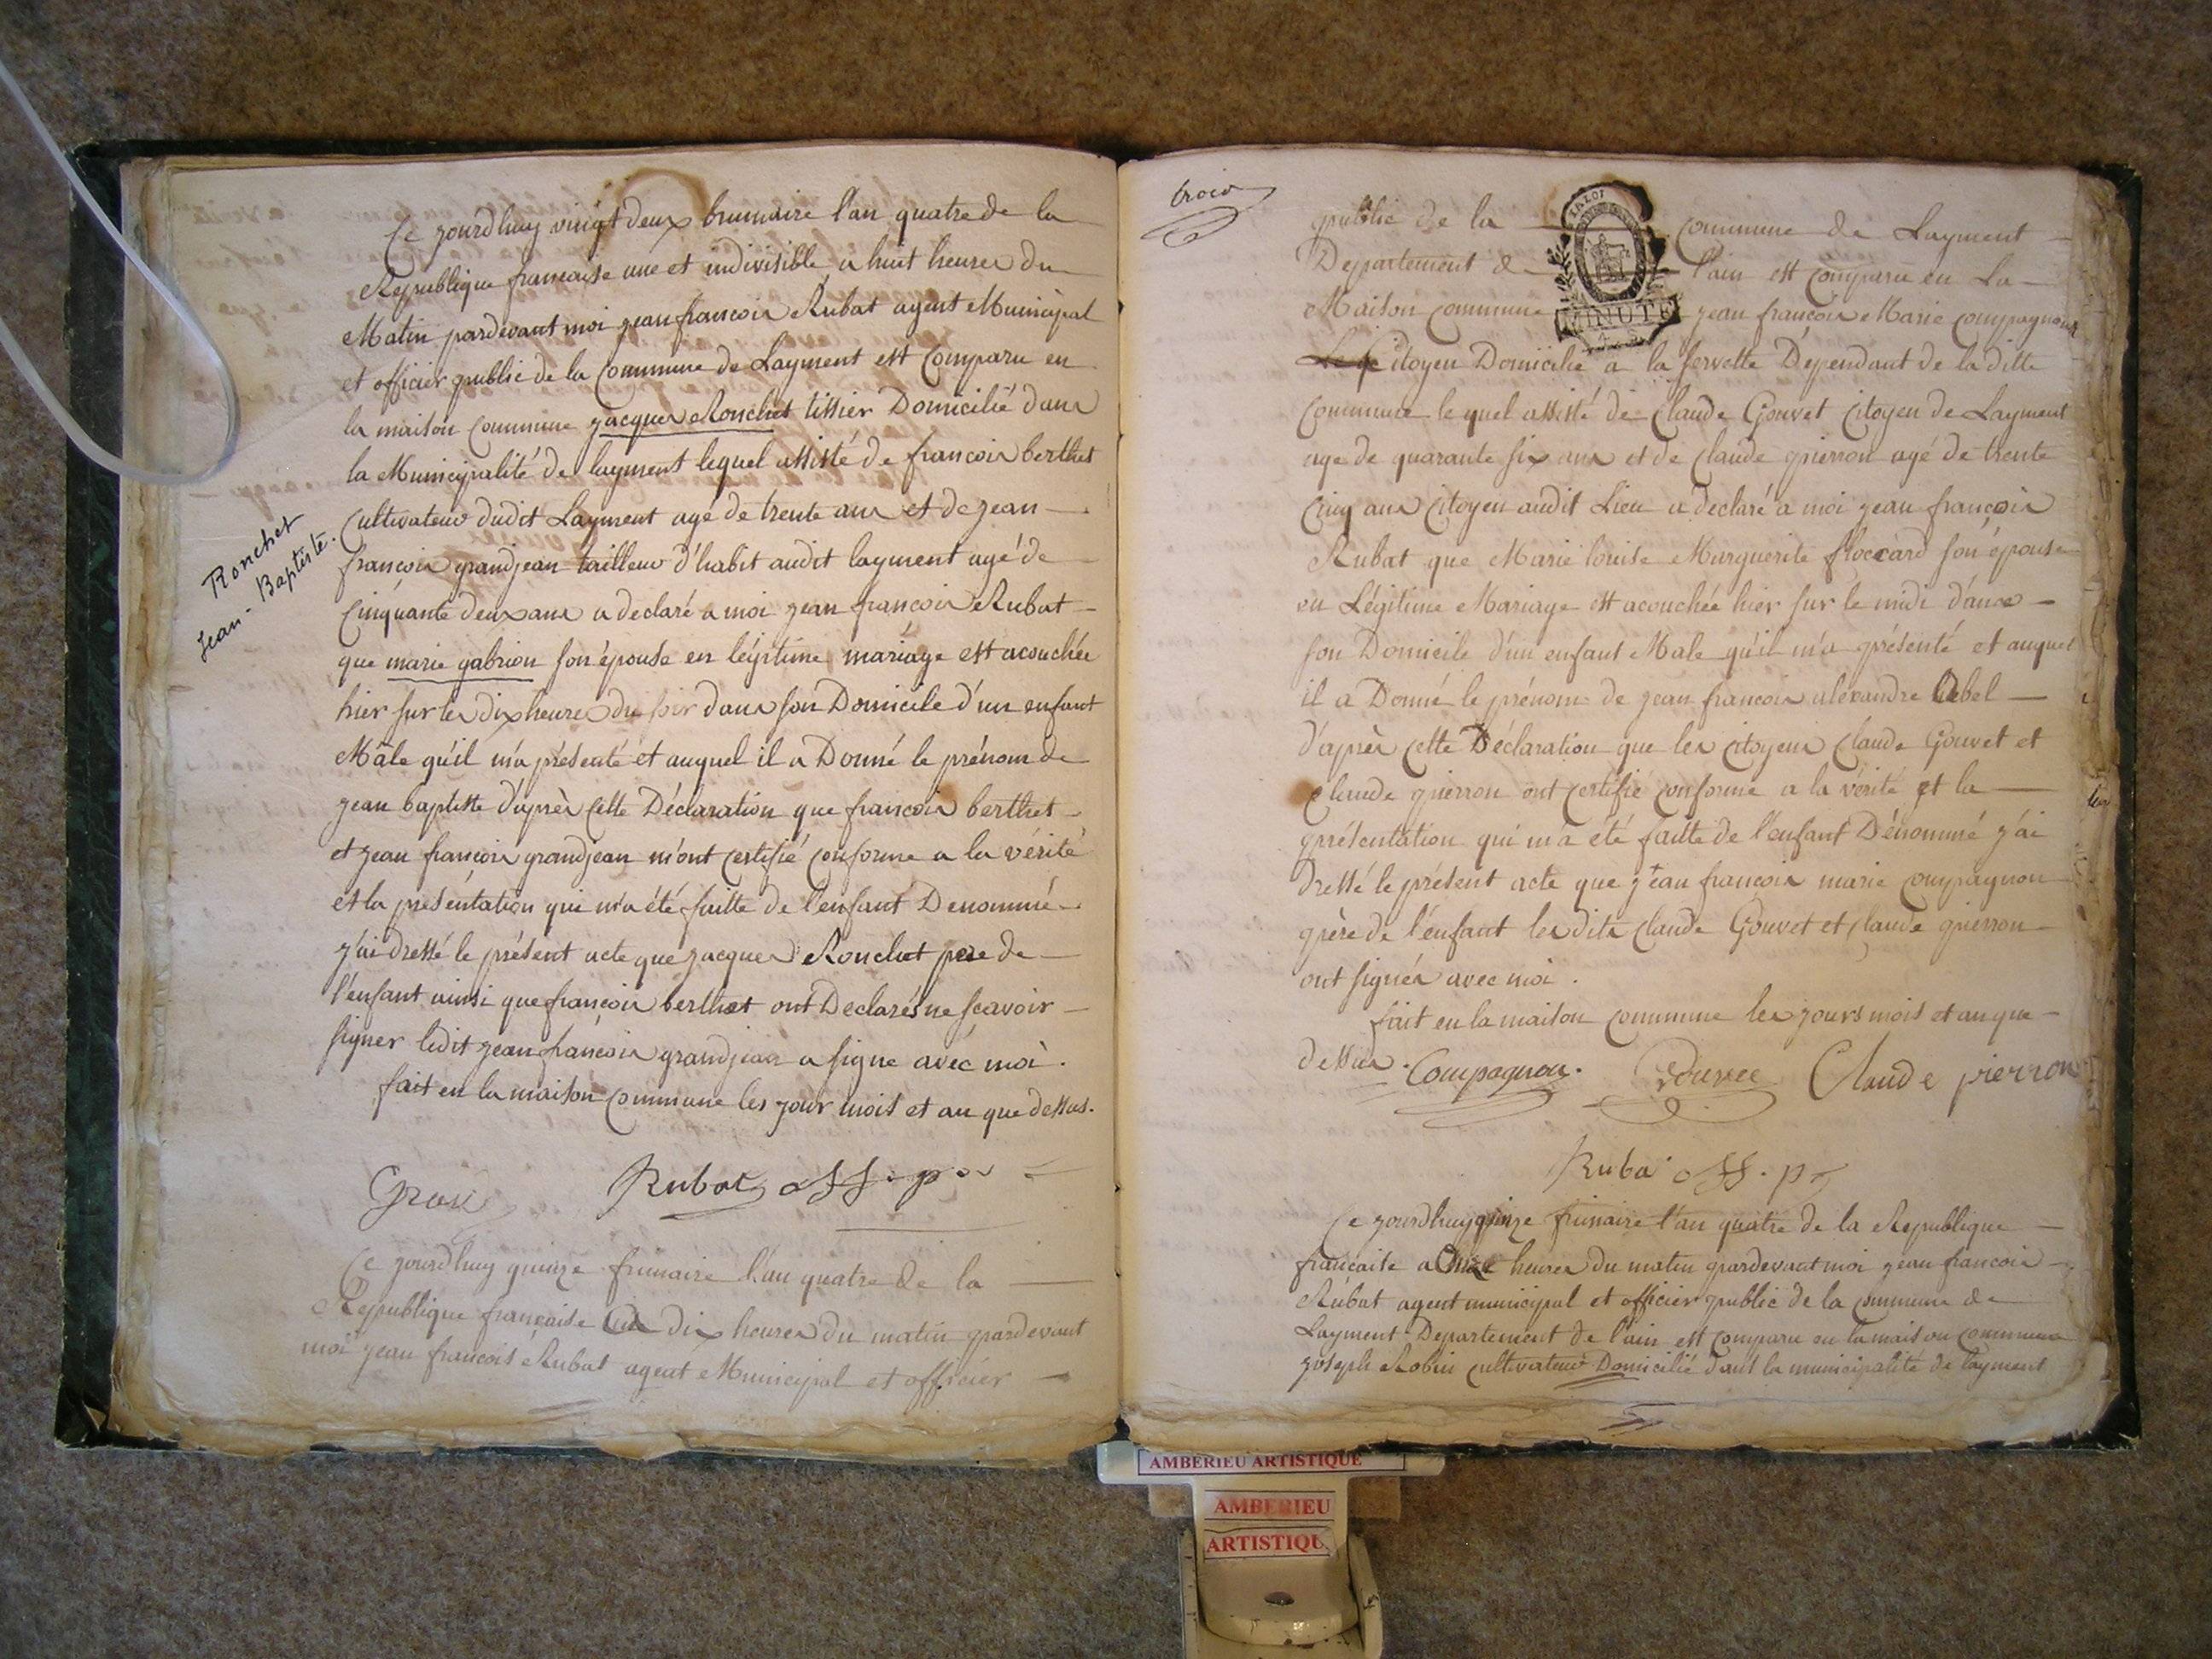 Ronchet
Jean-Baptiste.
Ce jourdhuy vingt deux brumaire l'an quatre de la
Republique francaise une et indivisible a huit heures du
Matin pardevant moi jean francois Rubat agent Municipal
et officier public de la Commune de Layment est Comparu en
la maison Commune jacques Ronchet tissier Domicilié dans
la Municipalité de layment lequel assisté de francois berthet
Cultivateur dudit Layment age de trente ans et de jean
francois grandjean tailleur d'habit audit layment agé de
Cinquante deux ans a declaré a moi jean francois Rubat
que marie gabrion son épouse en légitime mariage est acouchée
hier sur les dix heures du soir dans son Domicile d'un enfant
Mâle qu'il m'a présenté et auquel il a Donné le prénom de
jean baptiste d'après Cette Déclaration que francois berthet
et jean francois grandjean m'ont Certifié Conforme a la vérité
et la présentation qui m'a été faitte de l'enfant Denommé
j'ai dressé le présent acte que jacques Ronchet pere de
l'enfant ainsi que francois berthet ont Declarés ne scavoir
signer ledit jean francois grandjean a signe avec moi.
fait en la maison Commune les jour mois et an que dessus.
Rubat off. p
Ce jourdhuy quinze frimaire l'an quatre de la
Republique française a dix heures du matin pardevant
moi jean francois Rubat agent Municipal et officier
trois
public de la Commune de Layment
Departement de l'ain est Comparu en La
Maison Commune jean francois Marie Compagnon
MINUTE
Le Citoyen Domicilié a la servette Dependant de la ditte
Commune le quel assisté de Claude Gouvet Citoyen de Layment
age de quarante six ans et de Claude pierron agé de trente
Cinq ans Citoyen audit Lieu a declaré a moi jean francois
Rubat que Marie louise Marguerite floccard son épouse
en Légitime Mariage est acouchée hier sur le midi dans
son Domicile d'un enfant Male qu'il m'a présenté et auquel
il a Donné le prénom de jean francois alexandre abel
d'après Cette Déclaration que les Citoyens Claude Gouvet et
Claude pierron ont Certifié Conforme a la vérité et la
présentation qui m'a été faitte de l'enfant Dénommé j'ai
dressé le présent acte que jean francois marie Compagnon
père de l'enfant les dits Claude Gouvet et Claude pierron
ont signés avec moi.
fait en la maison Commune les jours mois et an que
dessus. Compagnon. Gouvee Claude pierron
Ruba off. p
Ce jourdhuy quinze frimaire l'an quatre de la Republique
francaise a Onze heures du matin pardevant moi jean francois
Rubat agent municipal et officier public de la Commune de
Layment Departement de l'ain est Comparu en la maison Commune
joseph Robin Cultivateur Domicilié dans la municipalité de layment
AMBERIEU ARTISTIQUE
AMBERIEU
ARTISTIQU